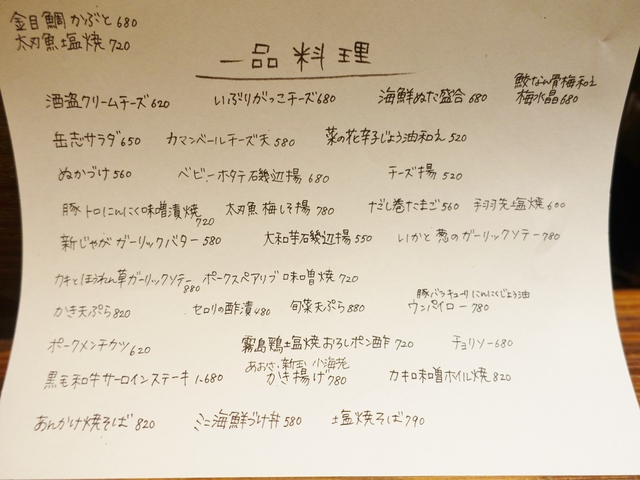 金目鯛かぶと680
太刀魚塩焼720
一品料理
酒盗クリームチーズ620 いぶりがっこチーズ680 海鮮ぬた盛合680 鮫なん骨梅和え
梅水晶680
岳志サラダ650 カマンベールチーズ天580 菜の花辛子じょう油和え520
ぬかづけ560 ベビーホタテ石幾辺揚680 チーズ揚520
豚トロにんにく味噌漬焼720 太刀魚梅しそ揚780 だし巻たまご560 手羽先塩焼600
新じゃがガーリックバター580 大和芋石幾辺揚550 いかと葱のガーリックソテー780
カキとほうれん草ガーリックソテー880 ポークスペアリブ味噌焼720
かき天ぷら820 セロリの酢漬480 旬菜天ぷら880 豚バラチャーリにんにくじょう油
ウンパイロー780
ポークメンチカツ620 霧島鶏塩焼おろしポン酢720 チョリソー680
黒毛和牛サーロインステーキ1.680 あおさ・新玉・小海老
かき揚げ780 カキ味噌ホイル焼820
あんかけ焼そば820 ミニ海鮮づけ丼580 塩焼そば790